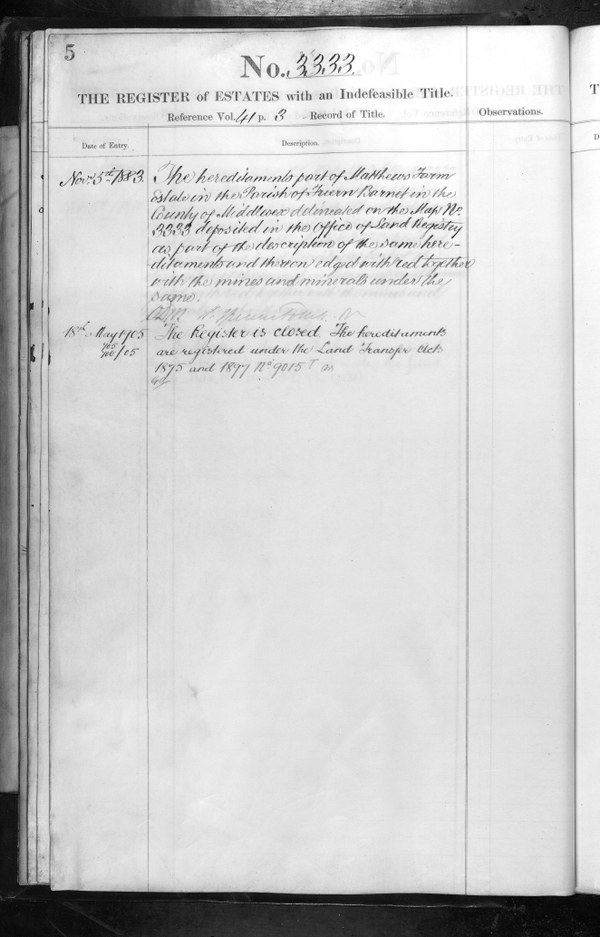 5
No. 3333
THE REGISTER of ESTATES with an Indefeasible Title.
Reference Vol. 41 p. 3 - Record of Title.
Observations.
Date of Entry.
Description.
Nov. 5th 1883.
The hereditaments part of Matthews Farm
Estate in the Parish of Friern Barnet in the
County of Middlesex delineated on the Map No.
3333 deposited in the Office of Land Registry
as part of the description of the same here-
ditaments and thereon edged with red together
with the mines and minerals under the
same.
18th May 1905
The Register is closed The hereditaments
are registered under the Land Transfer Acts
1875 and 1897 No 9015